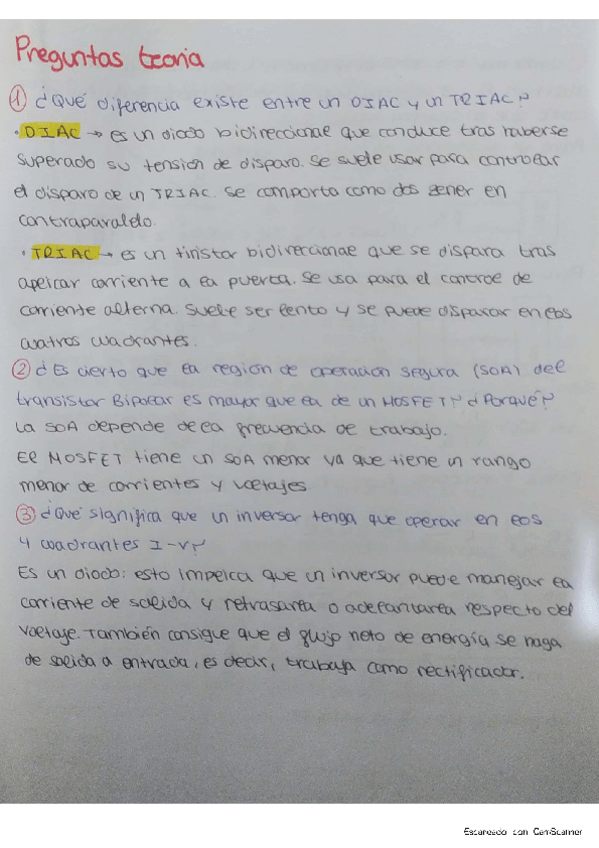 Preguntas teoria
① ¿Qué diferencia existe entre un DIAC y un TRIAC?
· DIAC → es un diodo bidireccional que conduce tras haberse
superado su tensión de disparo. Se suele usar para controlar
el disparo de un TRIAC. Se comporta como dos zener en
contraparalelo.
· TRIAC → es un tiristor bidireccional que se dispara tras
aplicar corriente a la puerta. Se usa para el control de
corriente alterna. Suele ser lento y se puede disparar en los
cuatros cuadrantes.
② ¿Es cierto que la región de operación segura (SOA) del
transistor Bipolar es mayor que la de un MOSFET? ¿Porqué?
La SOA depende de la frecuencia de trabajo.
El MOSFET tiene un SOA menor ya que tiene un rango
menor de corrientes y voltajes
③ ¿Qué significa que un inversor tenga que operar en los
4 cuadrantes I-V?
Es un diodo: esto implica que un inversor puede manejar la
corriente de salida y retrasarla o adelantarla respecto del
voltaje. También consigue que el flujo neto de energía se haga
de salida a entrada, es decir, trabaja como rectificador.
Escaneado con CamScanner